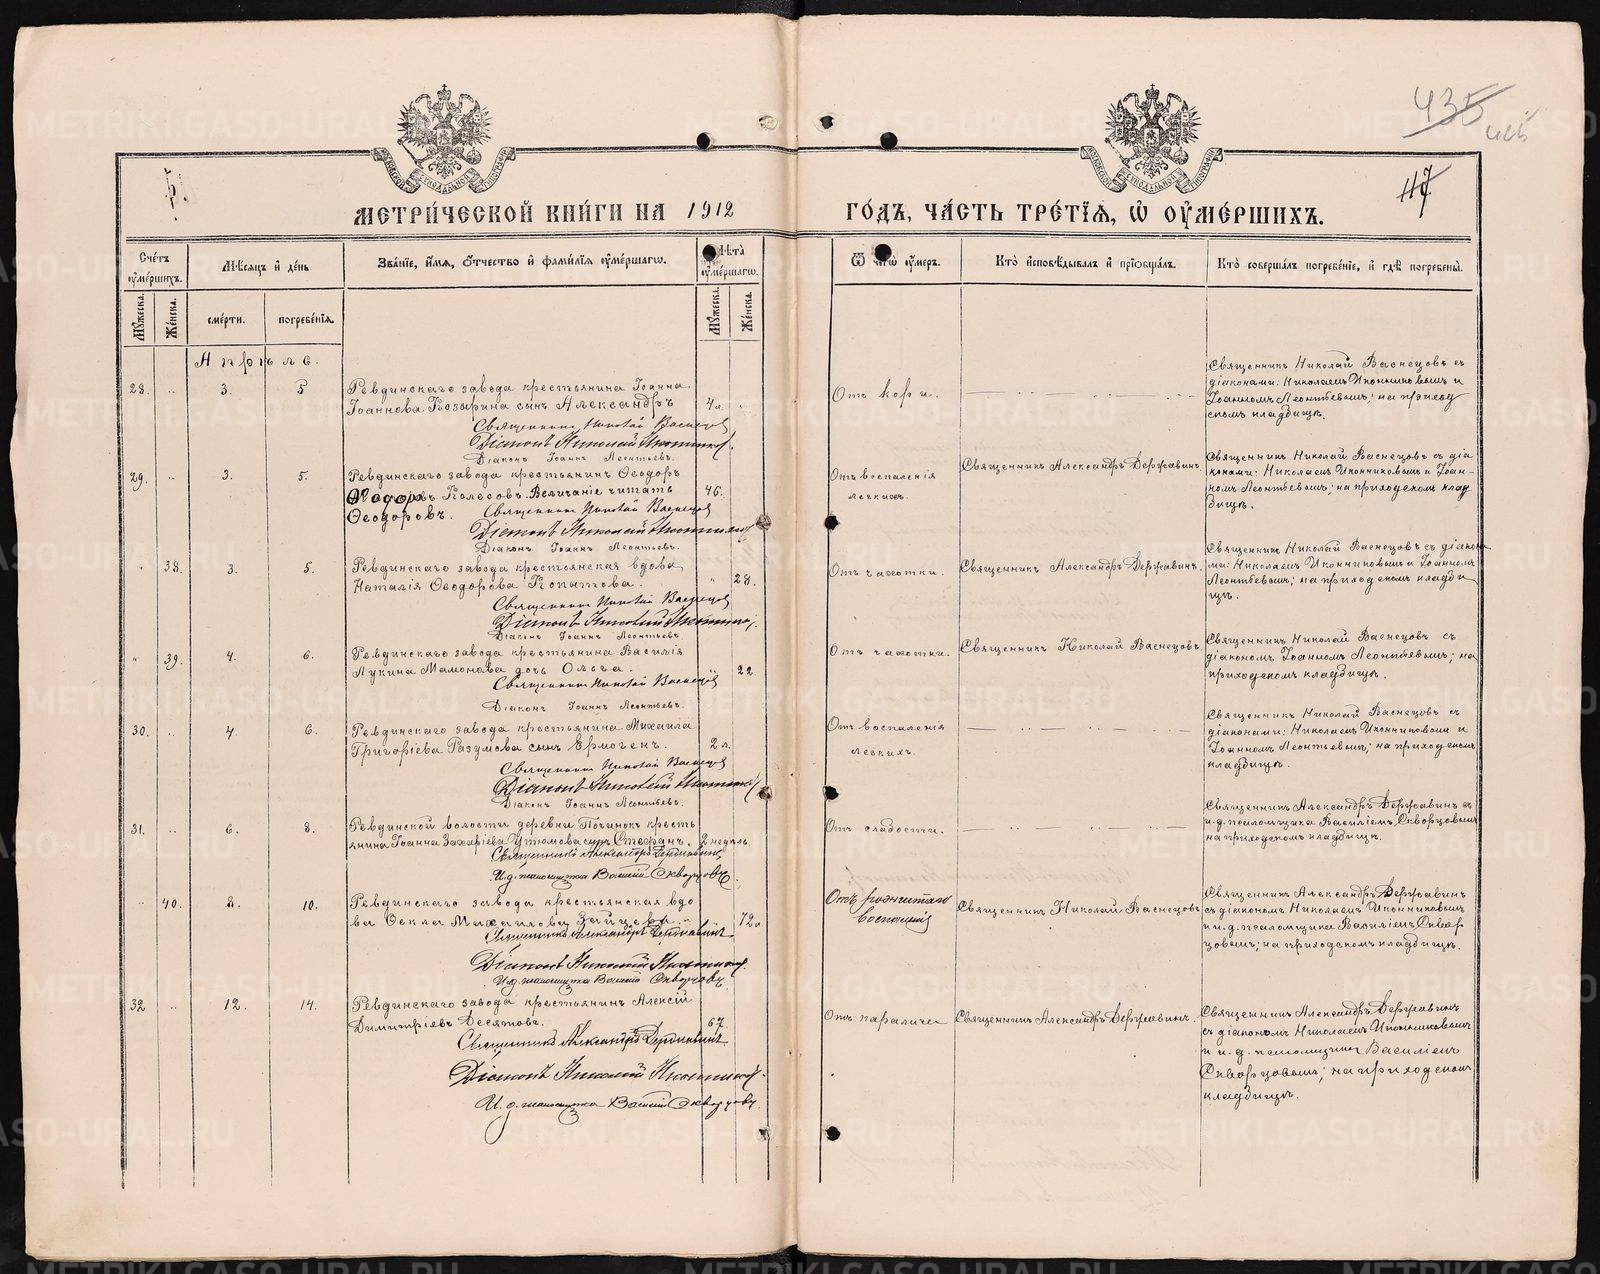 435
117
МЕТРИ́ЧЕСКОЙ КНИ́ГИ НА 1912 ГО́ДЪ, ЧА́СТЬ ТРЕ́ТІѦ, Ѡ҆ ОУ҆МЕ́РШИХЪ.
Сче́тъ оу҆ме́ршихъ.
Мѣ́сѧцъ и҆ де́нь
Зва́нїе, и҆́мѧ, ѻ҆́тчество и҆ фами́лїѧ оу҆ме́ршагѡ.
Лѣ́та оу҆ме́ршагѡ.
Ѿ чегѡ̀ оу҆́меръ.
Кто̀ и҆сповѣ́дывалъ и҆ прїѡбща́лъ.
Кто̀ соверша́лъ погребе́нїе, и҆ гдѣ̀ погребены̀.
Мꙋ́жеска.
Же́нска.
сме́рти.
погребе́нїѧ.
Мꙋ́жеска.
Же́нска.
Апрѣль.
28. 3. 5
Ревдинскаго завода крестьянина Іоанна
Іоаннова Козырина сынъ Александръ
4 л.
Священникъ Николай Васнецовъ
Діаконъ Николай Иконниковъ.
Діаконъ Іоаннъ Леонтьевъ.
Отъ кори.
Священник Николай Васнецовъ съ
діаконами: Николаемъ Иконниковымъ и
Іоанномъ Леонтьевымъ; на приход
скомъ кладбищѣ.
29. 3. 5.
Ревдинскаго завода крестьянинъ Ѳеодоръ
Колесовъ. Величаніе читать
Ѳеодоровъ.
46.
Священникъ Николай Васнецовъ
Діаконъ Николай Иконниковъ
Діаконъ Іоаннъ Леонтьевъ.
Отъ воспаленія
легкихъ.
Священникъ Александръ Державинъ
Священникъ Николай Васнецовъ съ діа
конами: Николаемъ Иконниковымъ и Іоан-
номъ Леонтьевымъ; на приходскомъ клад
бищѣ.
38. 3. 5.
Ревдинскаго завода крестьянская вдова
Наталія Ѳеодорова Копытова.
28.
Священникъ Николай Васнецовъ
Діаконъ Николай Иконниковъ.
Діаконъ Іоаннъ Леонтьевъ
Отъ чахотки.
Священникъ Александръ Державинъ.
Священник Николай Васнецовъ съ діакона
ми: Николаемъ Иконниковымъ и Іоанномъ
Леонтьевымъ; на приходскомъ кладби
щѣ.
39. 4. 6.
Ревдинскаго завода крестьянина Василія
Лукина Мамонова дочь Ольга.
22.
Священникъ Николай Васнецовъ
Діаконъ Іоаннъ Леонтьевъ.
Отъ чахотки.
Священникъ Николай Васнецовъ.
Священникъ Николай Васнецовъ съ
діакономъ Іоанномъ Леонтьевымъ; на
приходскомъ кладбищѣ.
30. 4. 6.
Ревдинскаго завода крестьянина Михаила
Григоріева Разумова сынъ Ермогенъ.
2 л.
Священникъ Николай Васнецовъ
Діаконъ Николай Иконниковъ
Діаконъ Іоаннъ Леонтьевъ.
Отъ воспаленія
легкихъ.
Священникъ Николай Васнецовъ съ
діаконами: Николаемъ Иконниковымъ и
Іоанномъ Леонтьевымъ; на приходскомъ
кладбищѣ.
31. 6. 8.
Ревдинской волости деревни Починокъ кресть
янина Іоанна Захаріева Утюмова сынъ Стефанъ.
2 недѣль.
Священникъ Александръ Державинъ
И.д. псаломщика Василій Скворцовъ.
Отъ слабости.
Священникъ Александръ Державинъ съ
и.д. псаломщика Василіемъ Скворцовымъ
на приходскомъ кладбищѣ.
40. 8. 10.
Ревдинскаго завода крестьянская вдо
ва Ѳекла Михаилова Зайцева.
72.
Священникъ Александръ Державинъ
Діаконъ Николай Иконниковъ.
И.д. псаломщика Василій Скворцовъ.
Священникъ Николай Васнецовъ
Священникъ Александръ Державинъ
съ діакономъ Николаемъ Иконниковымъ
и и.д. псаломщика Василіемъ Сквор
цовымъ; на приходскомъ кладбищѣ.
32 12. 14.
Ревдинскаго завода крестьянинъ Алексій
Димитріевъ Десятовъ.
67.
Священникъ Александръ Державинъ
Діаконъ Николай Иконниковъ.
И.д. псаломщика Василій Скворцовъ.
Отъ паралича
Священникъ Александръ Державинъ.
Священникъ Александръ Державинъ
съ діакономъ Николаемъ Иконниковымъ
и и.д. псаломщика Василіемъ
Скворцовымъ; на приходскомъ
кладбищѣ.